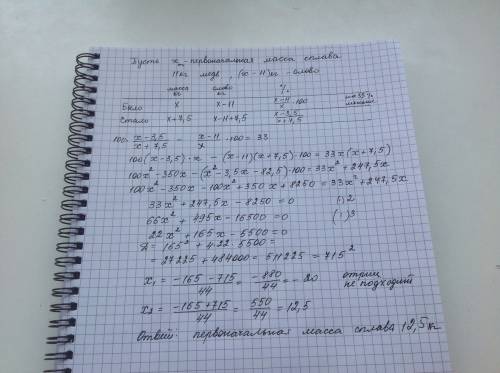 Пусть x - первоначальная масса сплава
11 кг медь, (x - 11) кг - олово
масса кг олово кг %
Было x x-11 x-11/x · 100 на 33%
Стало x+7,5 x-11+7,5 x-3,5/x+7,5
100· x-3,5/x+7,5 - x-11/x · 100 = 33
100(x-3,5)·x - (x-11)(x+7,5)·100 = 33x(x+7,5)
100x² - 350x - (x² - 3,5x - 82,5)·100 = 33x² + 247,5x
100x² - 350x - 100x² + 350x + 8250 = 33x² + 247,5x
33x² + 247,5x - 8250 = 0 (·)2
66x² + 495x - 16500 = 0 (:)3
22x² + 165x - 5500 = 0
D = 165² + 4·22·5500 =
= 27225 + 484000 = 511225 = 715²
x₁ = -165-715/44 = -880/44 = -20 отриц не подходит
x₂ = -165+715/44 = 550/44 = 12,5
Ответ: первоначальная масса сплава 12,5 кг